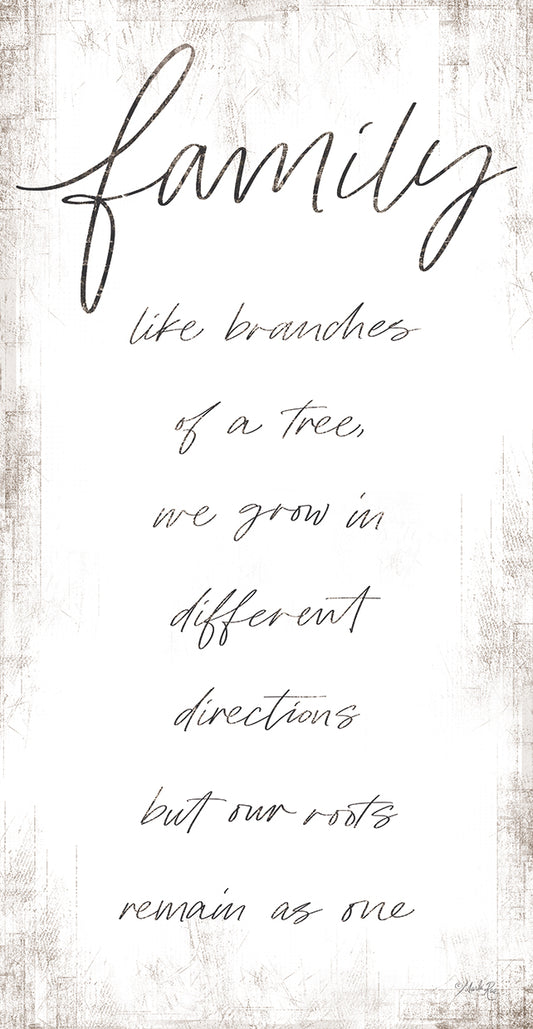 family
like branches
of a tree,
we grow in
different
directions
but our roots
remain as one